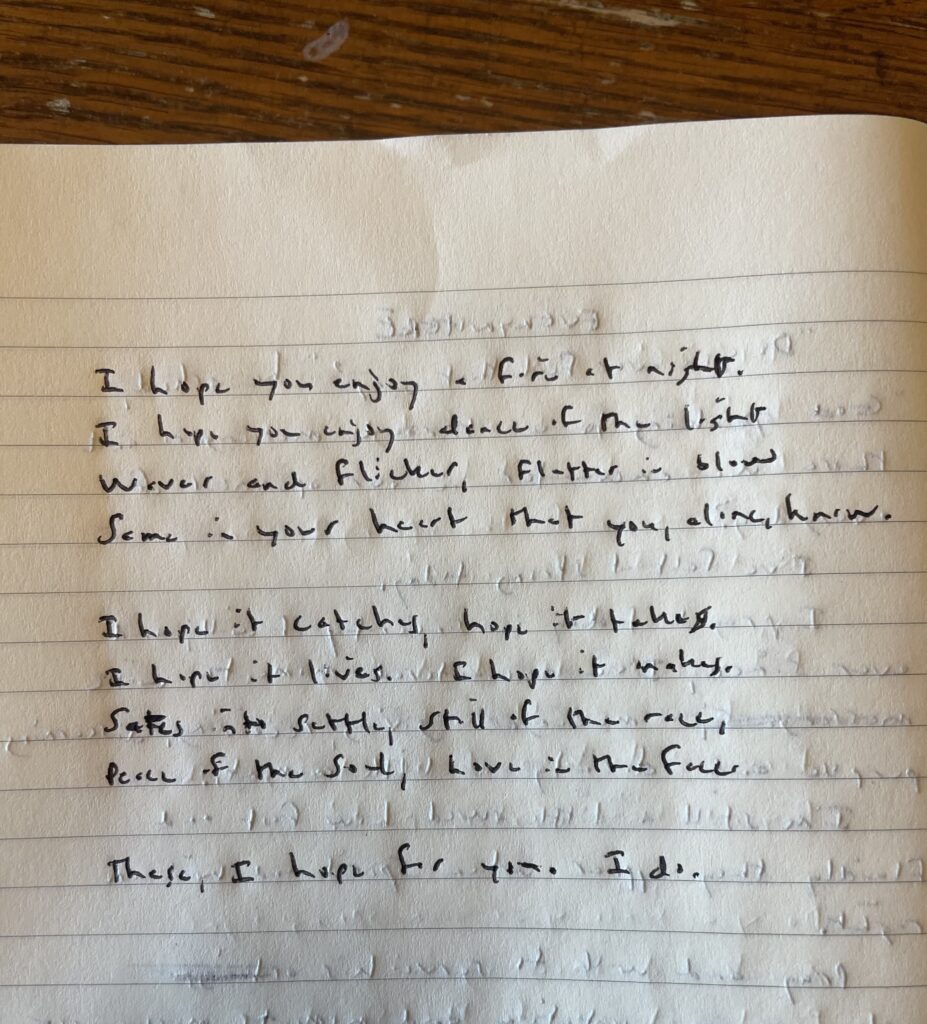 I hope you enjoy a fire at night.
I hope you enjoy dance of the light
Waver and flicker, flutter in blow
Same in your heart that you, alone, know.
I hope it catches, hope it takes.
I hope it lives. I hope it makes.
Sates into settle, still of the race,
Peace of the Soul, Love in the face
These, I hope for you. I do.